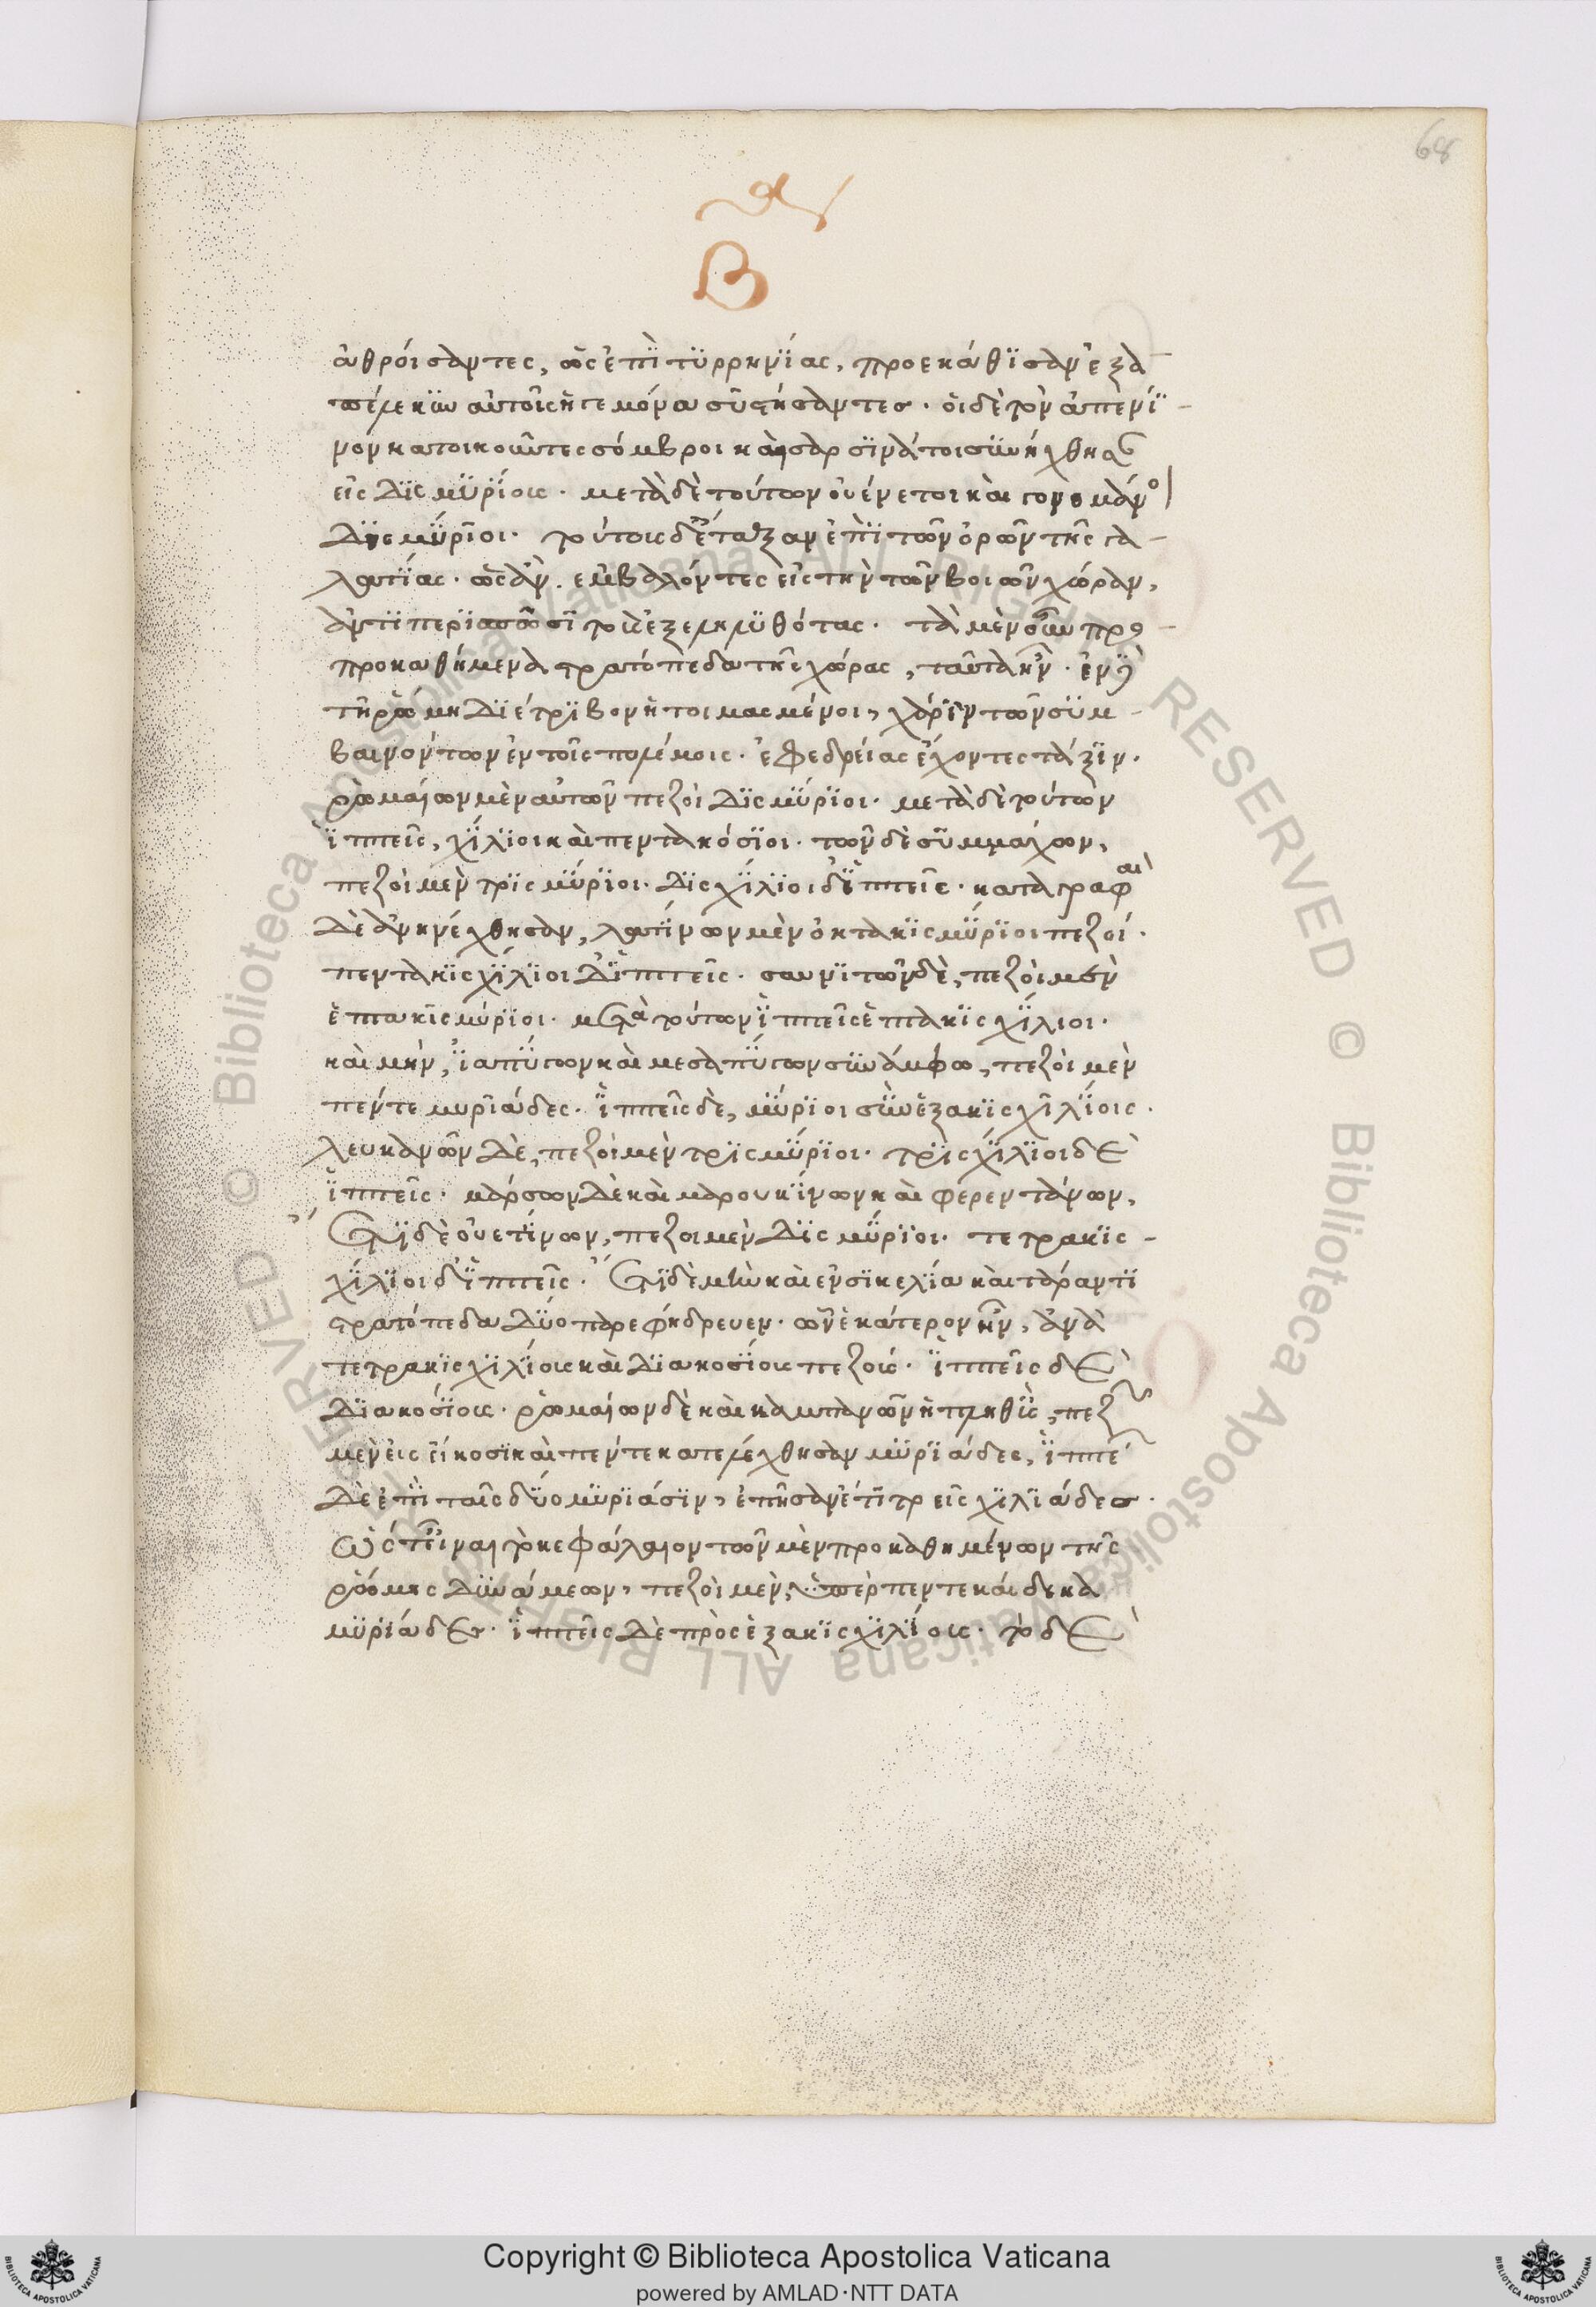 68
Β
ἀθρόισαντες, ὡς ἐπὶ τυρρηνίας, προεκάθϊσαν ἑξα
πέλεκυν αὐτοῖς ἡγεμόνα συστήσαντες. οἱ δὲ τὸν ἀπεννί
νον κατοικοῦντες όμβροι καὶ σαρσϊνάτοι συνήχθησ
εἰς δϊς μϋρίους. μετὰ δὲ τούτων οὐένετοι καὶ γονομάνο
δϊς μύρϊοι. τούτους δ' ἔταξαν ἐπὶ τῶν ὁρῶν τῆς γα
λατίας. ὡς ἂν. ἐμβαλόντες εἰς τὴν τῶν βοιῶν χώραν,
ἀντϊπερϊσπῶσϊ τοὺς ἐξεληλϋθότας. τὰ μὲν οὖν προ
προκαθήμενα στρατόπεδα τῆς χώρας, ταῦτα ἦν. ἐν δὲ
τῇ ῥώμῃ δϊέτρϊβον ἡτοιμασμένοι, χάρϊν τῶν συμ
βαινόντων ἐν τοῖς πολέμοις. ἐφεδρείας ἔχοντες τάξϊν.
ῥωμαίων μὲν αὐτῶν πεζοὶ δϊς μύρϊοι. μετὰ δὲ τούτων
ἱππεῖς, χίλϊοι καὶ πεντακόσϊοι. τῶν δὲ συμμάχων,
πεζοὶ μὲν τρϊς μύρϊοι. δϊς χίλϊοι δ' ἱππεῖς. καταγραφαὶ
δὲ ἀνηνέχθησαν, λατίνων μὲν ὀκτακϊς μύρϊοι πεζοί.
πεντακϊς χίλϊοι δ' ἱππεῖς. σαυνϊτῶν δὲ, πεζοὶ μὲν
ἑπτακϊς μύρϊοι. μετὰ τούτων ἱππεῖς ἑπτακϊς χίλιοι.
καὶ μὴν, ἰαπύγων καὶ μεσαπύγων συνάμφω, πεζοὶ μὲν
πέντε μυριάδες. ἱππεῖς δὲ, μύρϊοι σὺν ἑξακϊς χϊλίοις.
λευκανῶν δὲ, πεζοὶ μὲν τρϊς μύρϊοι. τρϊς χίλϊοι δὲ
ἱππεῖς. μάρσων δὲ καὶ μαρουκίνων καὶ φερεντάνων,
ἔτϊ δὲ οὐετίνων, πεζοι μὲν δϊς μύρϊοι. τετρακϊς
χίλϊοι δ' ἱππεῖς. ἔτϊ δὲ μὴν καὶ ἐν σϊκελία καὶ τάραντϊ
στρατόπεδα δύο παρεφήδρευεν. ὧν ἑκάτερον ἦν, ἀνὰ
τετρακϊς χϊλίους καὶ δϊακοσίους πεζούς. ἱππεῖς δὲ
δϊακοσίους. ῥωμαίων δὲ καὶ καμπανῶν ἡ πληθὺς, πεζῶν
μὲν εἰς εἴκοσϊ καὶ πέντε κατελέχθησαν μϋρϊάδες, ἱππέ
δὲ ἐπὶ ταῖς δύο μϋρϊάσϊν, ἐπῆσαν ἔτϊ τρεῖς χϊλϊάδες.
ὥστ' εἶναι τὸ κεφάλαιον τῶν μὲν προκαθημένων τῆς
ῥώμης δυνάμεων, πεζοὶ μὲν, ὑπὲρ πεντεκαίδεκα
μϋρϊάδες. ἱππεῖς δὲ πρὸς ἑξακϊς χϊλίους. τὸ δὲ
Copyright © Biblioteca Apostolica Vaticana
powered by AMLAD·NTT DATA